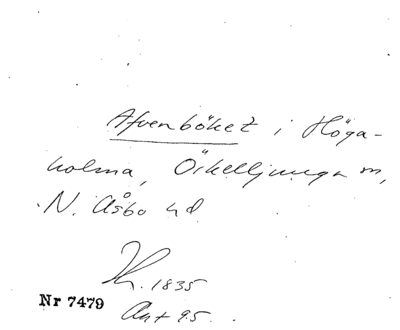 Afvenböket i Höga-
holma, Örkelljunga sn,
N. Åsbo hd
K. 1835
Nr 7479
Ant 95